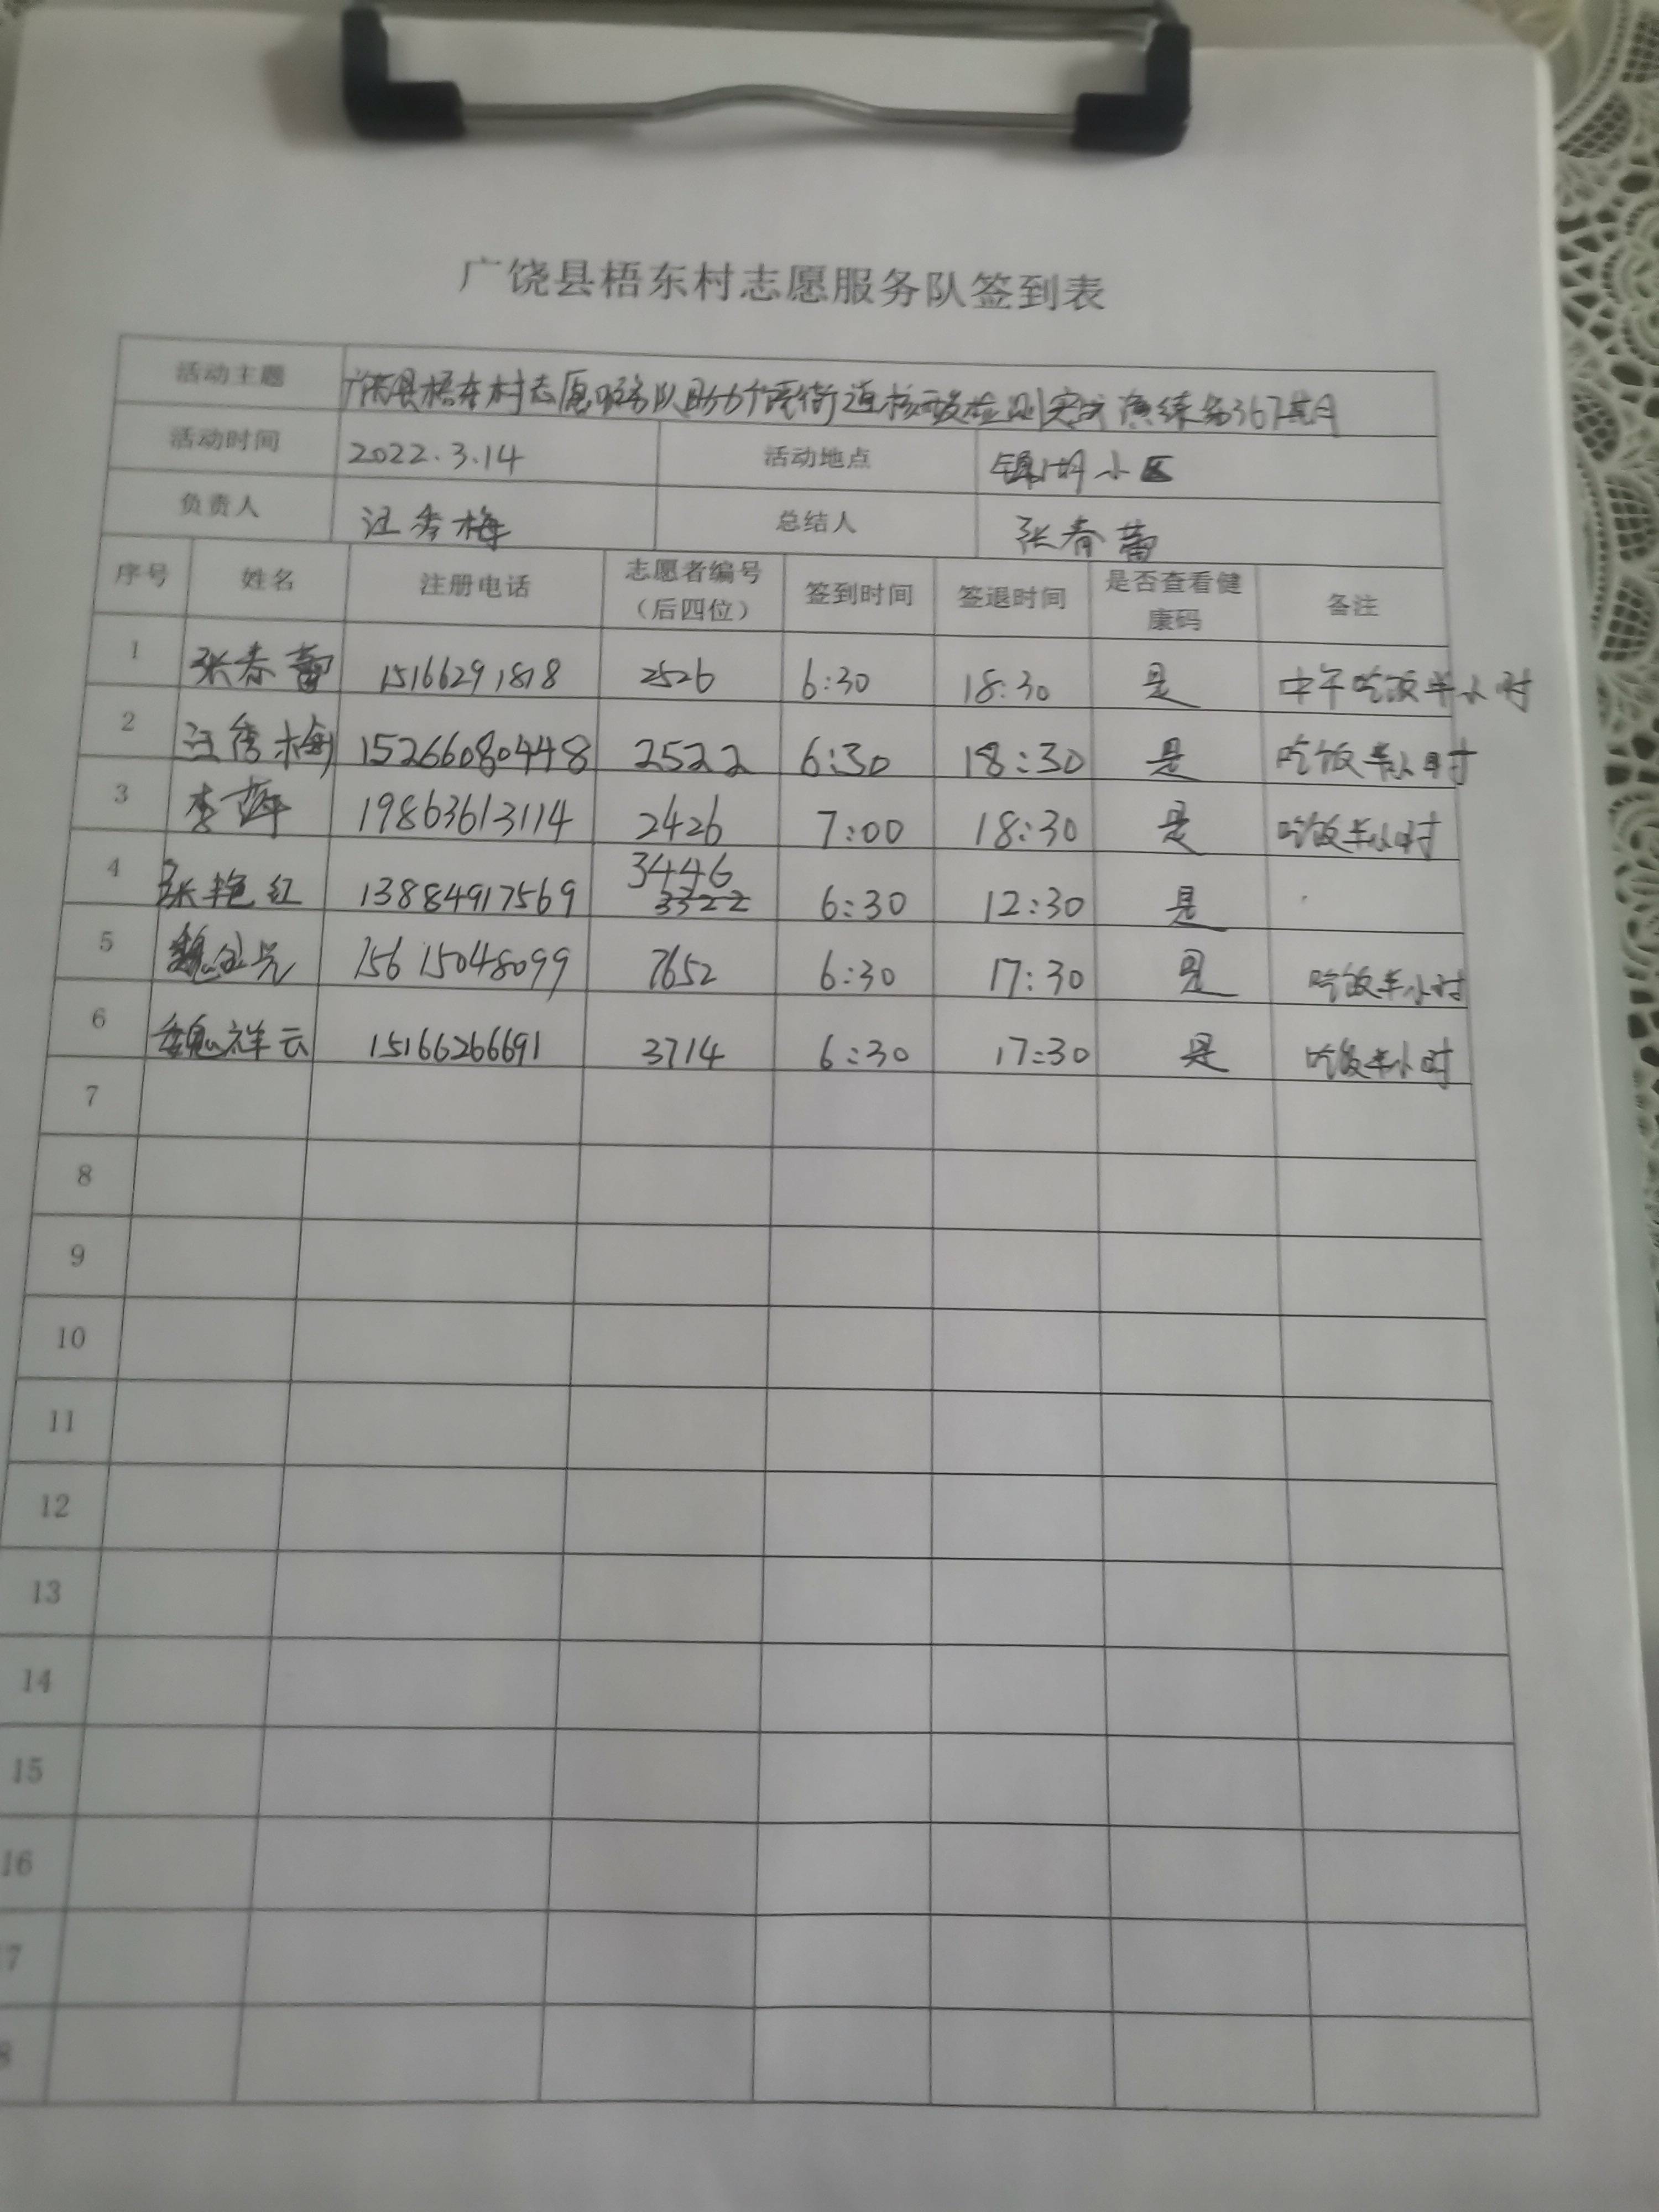 广饶县梧东村志愿服务队签到表
活动主题 广饶县梧东村志愿服务队助力广饶街道核酸检测实战演练第367期
活动时间 2022.3.14 活动地点 锦湖小区
负责人 汪秀梅 总结人 张春蕾
序号 姓名 注册电话 志愿者编号（后四位） 签到时间 签退时间 是否查看健康码 备注
1 张春蕾 15166291818 2526 6:30 18:30 是 中午吃饭半小时
2 汪秀梅 15266080448 2522 6:30 18:30 是 吃饭半小时
3 李萍 19863613114 2426 7:00 18:30 是 吃饭半小时
4 张艳红 13884917569 3446 3322 6:30 12:30 是
5 15615048099 7652 6:30 17:30 是 吃饭半小时
6 魏祥云 15166266691 3714 6:30 17:30 是 吃饭半小时
7
8
9
10
11
12
13
14
15
16
7
8